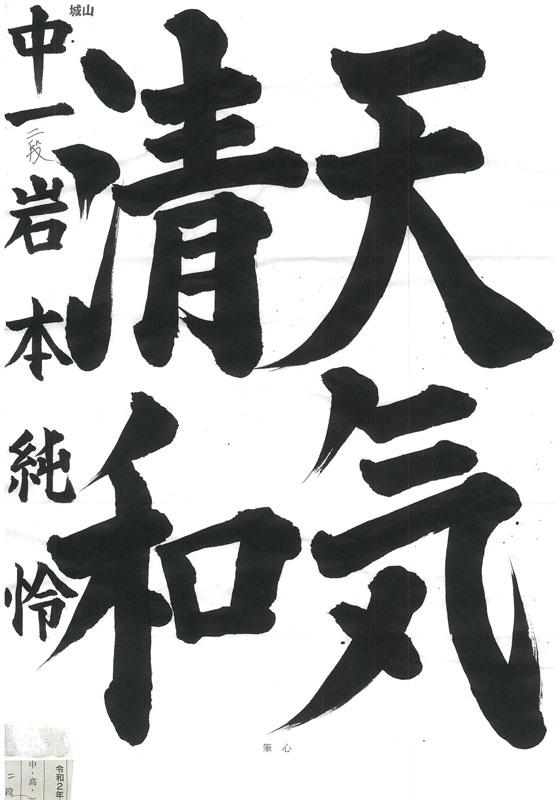 天気
清和
中一 二段 岩本純怜
城山
筆心
令和2年
中・高・
二段